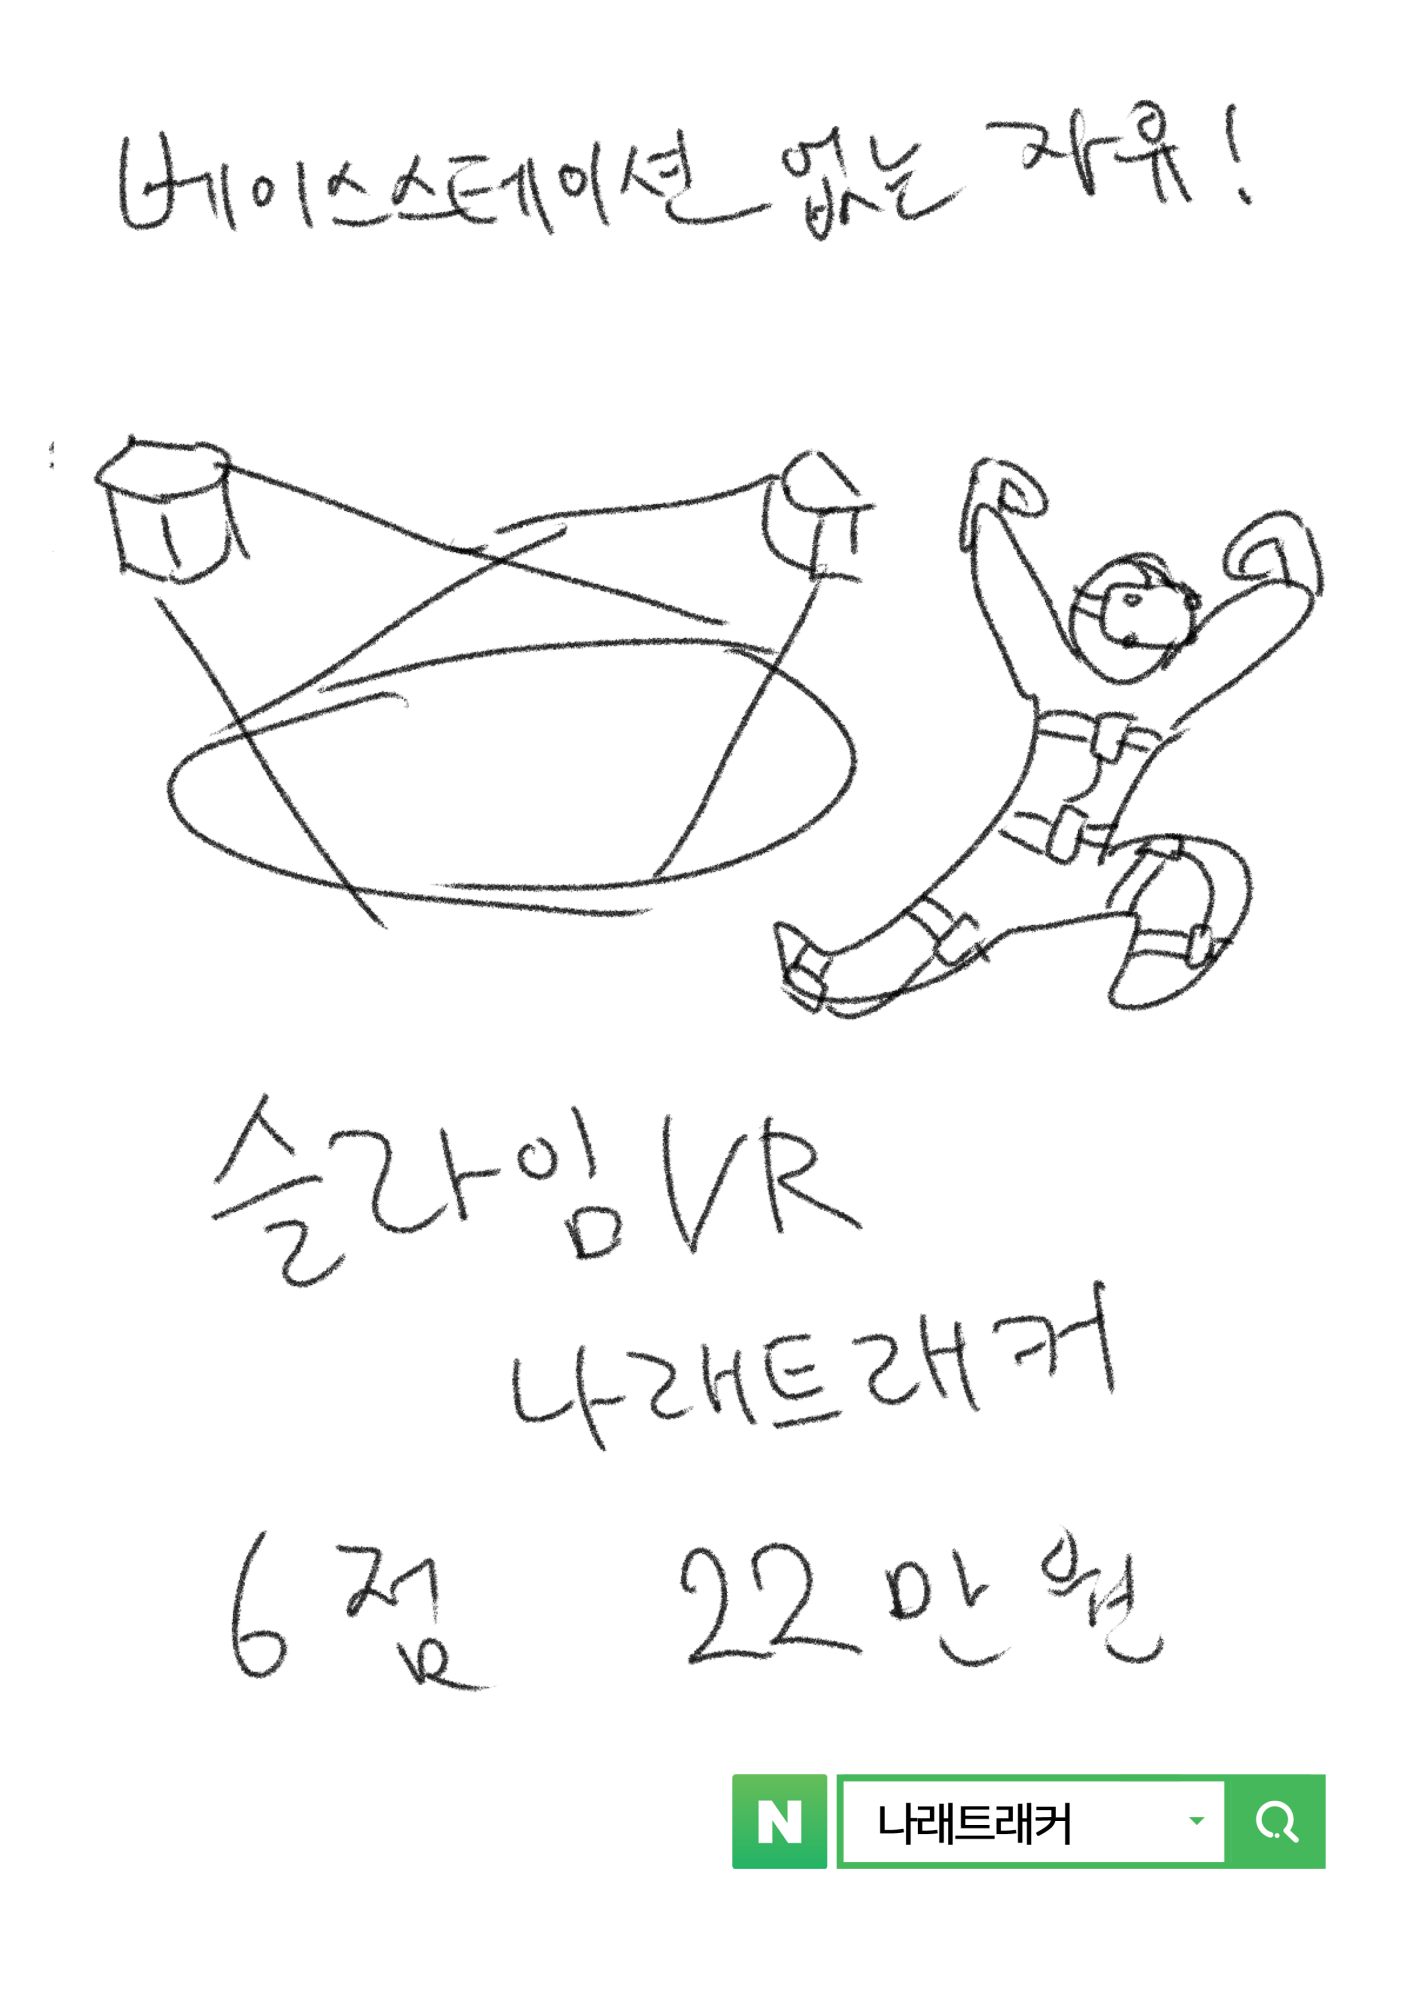 베이스스테이션 없는 자유!
슬라임VR
나래트래커
6점 22만원
N 나래트래커